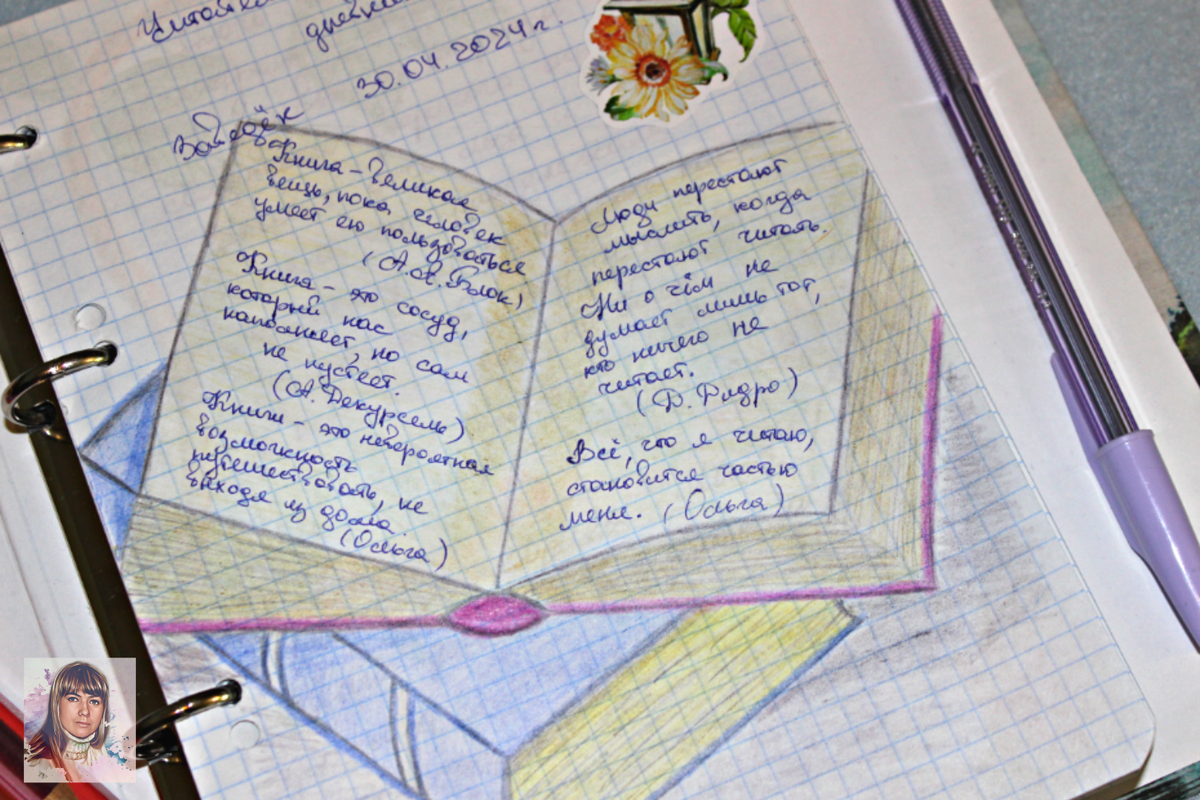 Читательский
дневник
30.04.2024г.
Вайсдёк
Книга - великая
вещь, пока человек
умеет ею пользоваться
(А.А. Блок)
Книга - это сосуд,
который нас
наполняет, но сам
не пустеет.
(А. Декурсель)
Книги - это невероятная
возможность
путешествовать, не
выходя из дома.
(Ольга)
Люди перестают
мыслить, когда
перестают читать.
Ни о чём не
думает лишь тот,
кто ничего не
читает.
(Д. Дидро)
Всё, что я читаю,
становится частью
меня. (Ольга)